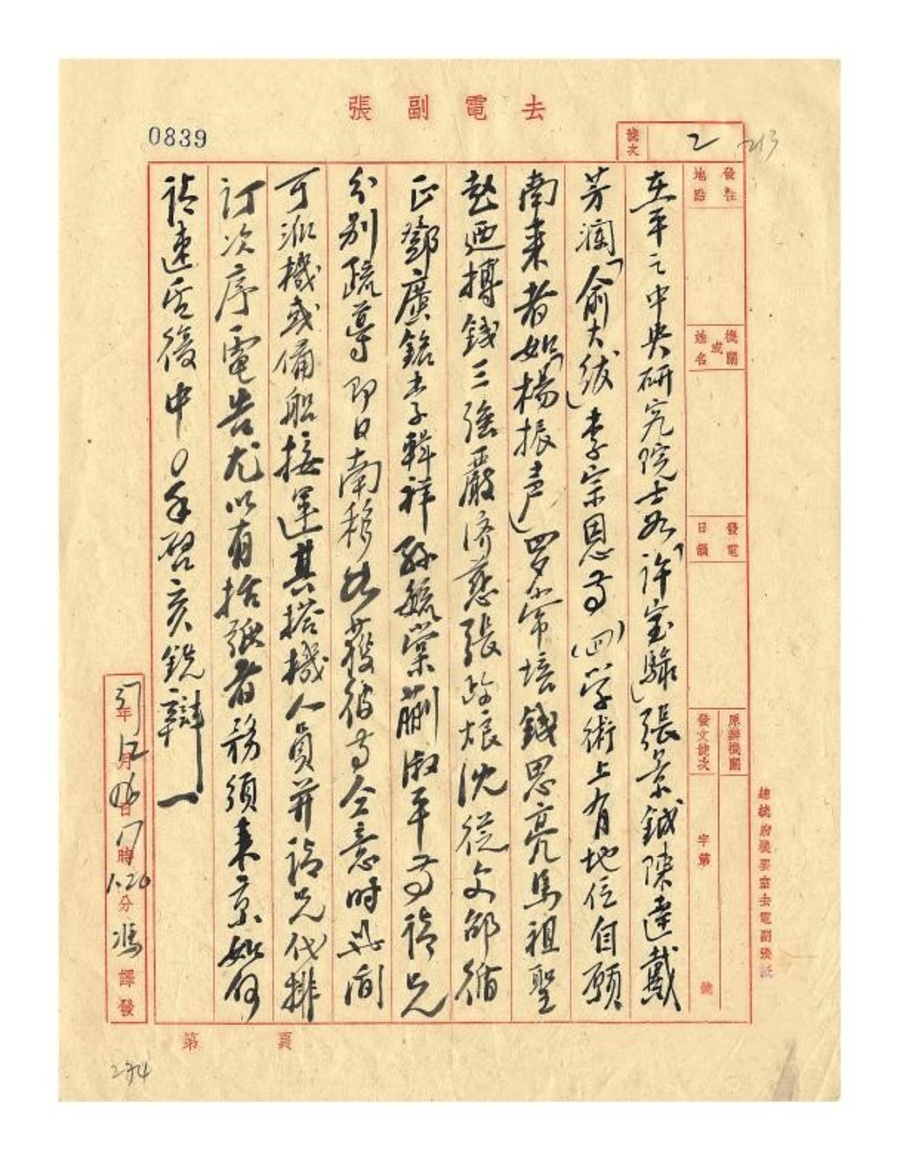 去電副張
0839
號次
2
213
發往地點
機關或姓名
發電日韻
原辦機關發文號次
字第
號
在平之中央研究院院士如「許宝騄」張景鉞陳達戴
芳瀾「俞大紱」李宗恩等(四)学術上有地位自願
南来者如「楊振声」羅常培錢思亮馬祖聖
赵廼摶錢三強嚴济慈張政烺沈從文邵循
正鄧廣銘李輯祥孫毓棠蒯淑平等請兄
分別疏導即日南移如获彼等全意時若干间
可派機或備船接運其搭機人員并請兄代排
訂次序電告尤以有括弧者務須来京如何
請速洽復中〇手啟亥銑
辯一
總統府機要室去電副張紙
37年12月16日17時1.20分馮譯發
第 頁
274